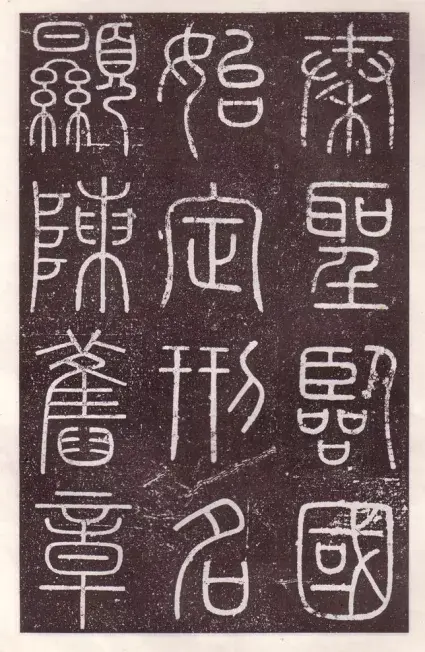 秦聖臨國
始定刑名
顯陳舊章